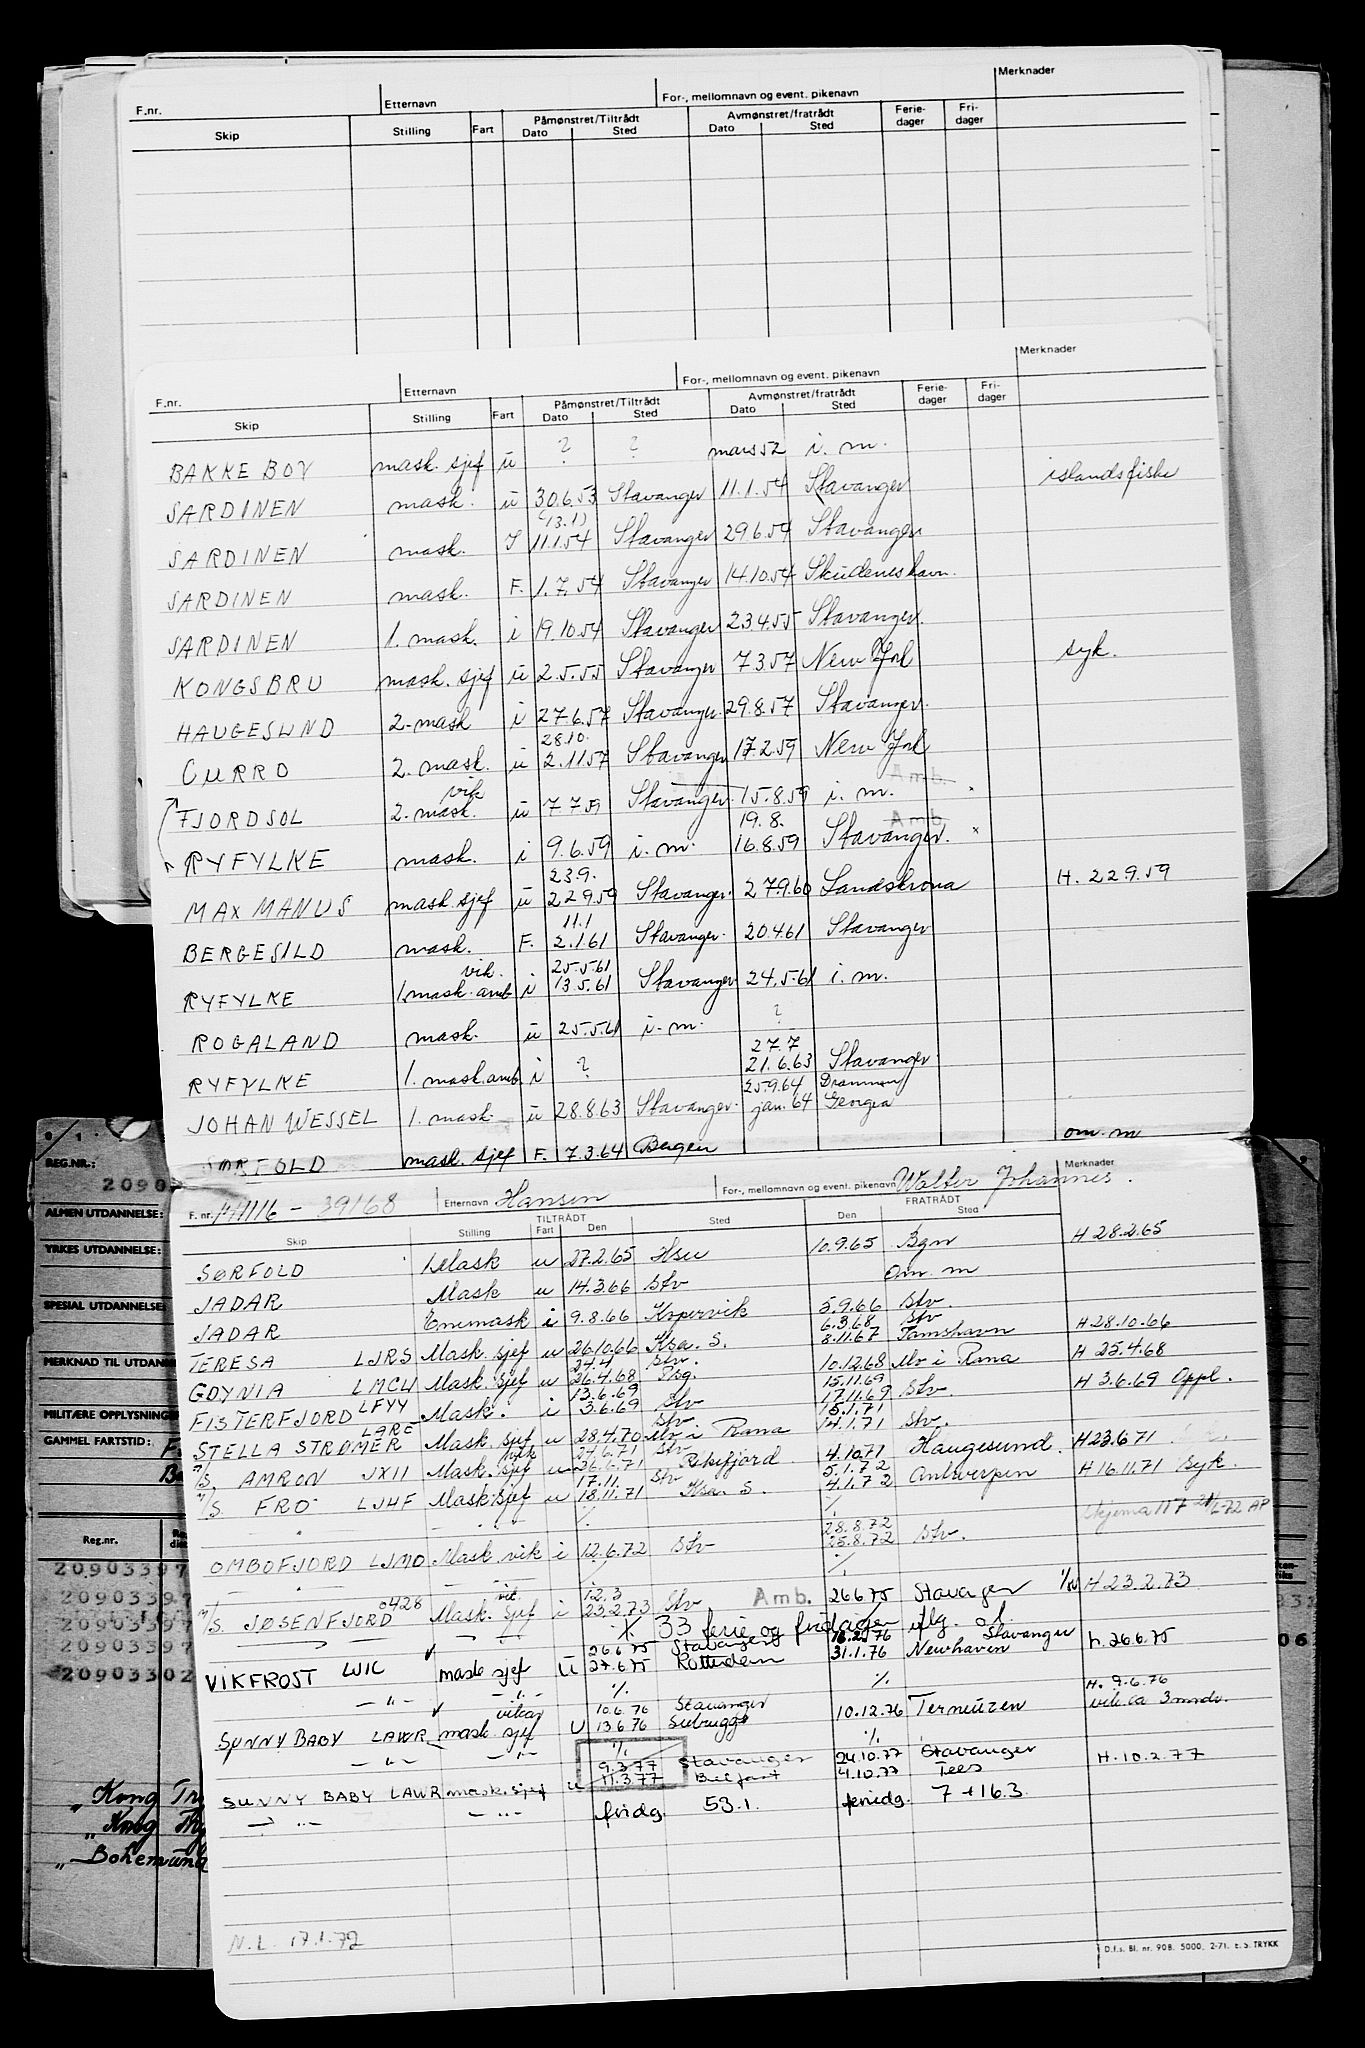 F.nr. Etternavn For-, mellomnavn og event. pikenavn Merknader
Skip Stilling Fart Påmønstret/Tiltrådt Dato Sted Avmønstret/fratrådt Dato Sted Ferie-dager Fri-dager
F.nr. Etternavn For-, mellomnavn og event. pikenavn Merknader
Skip Stilling Fart Påmønstret/Tiltrådt Dato Sted Avmønstret/fratrådt Dato Sted Ferie-dager Fri-dager
BAKKE BOY mask. sjef u ? ? mars 52 i. m.
SARDINEN mask. u 30.6.53 Stavanger 11.1.54 Stavanger islandsfiske
(13.1)
SARDINEN mask. 11.1.54 Stavanger 29.6.54 Stavanger
SARDINEN mask. F. 1.7.54 Stavanger 14.10.54 Skudeneshavn
SARDINEN 1. mask. i 19.10.54 Stavanger 23.4.55 Stavanger
KONGSBRU mask. sjef u 2.5.55 Stavanger 7.3.57 New York syk.
HAUGESUND 2. mask i 27.6.57 Stavanger 29.8.57 Stavanger
28.10.
CURRO 2. mask. u 2.11.57 Stavanger 17.2.59 New York
vik Amb.
FJORDSOL 2. mask. u 7.7.59 Stavanger 15.8.59 i. m. x
19.8. Amb.
RYFYLKE mask. i 9.6.59 i. m. 16.8.59 Stavanger. x
23.9.
MAX MANUS mask sjef u 22.9.59 Stavanger 27.9.60 Landskrona H. 22.9.59
11.1
BERGESILD mask. F. 2.1.61 Stavanger 20.4.61 Stavanger
vik. 25.5.61
RYFYLKE 1. mask. amb i 13.5.61 Stavanger 24.5.61 i. m.
ROGALAND mask. u 25.5.61 i. m. ?
27.7
RYFYLKE 1. mask. amb i ? 21.6.63 Stavanger
25.9.64 Drammen
JOHAN WESSEL 1. mask. u 28.8.63 Stavanger jan. 64 Georgia
SØRFOLD mask. sjef F. 7.3.64 Bergen om. m
F. nr. 141116 - 39168 Etternavn Hansen For-, mellomnavn og event. pikenavn Walter Johannes. Merknader
Skip Stilling TILTRÅDT Fart Den Sted FRATRÅDT Den Sted
SØRFOLD 1 Mask u 27.2.65 Hsu 10.9.65 Bgn H 28.2.65
JADAR Mask u 14.3.66 Stv Om. m
JADAR Enemask i 9.8.66 Kopervik 5.9.66 Stv.
6.3.68 Stv
TERESA LJRS Mask. sjef u 26.10.66 Ksa. S. 8.11.67 Tomshavn H 28.10.66
24.4 Stv.
GDYNIA LMCW Mask. sjef u 26.4.68 10.12.68 Mo i Rana H 25.4.68
13.6.69 15.11.69
FISTERFJORD LFYY Mask. i 3.6.69 Stv 17.11.69 Stv. H 3.6.69 Oppl.
LARC Stv 15.1.71
STELLA STRØMER Mask. sjef u 28.4.70 Mo i Rana 14.1.71 Stv.
vik 24.6.71 Stv
M/S. AMRON JXII Mask. sjef u 26.6.71 Rekefjord 4.10.71 Haugesund. H 23.6.71
17.11 Stv 5.1.72
M/S. FRO LJHF Mask. sjef u 18.11.71 Ksa. S. 4.1.72 Antwerpen H 16.11.71 Syk.
- " - % % Skjema 117 72 AP
28.8.72
OMBOFJORD LJMO Mask. vik i 12.6.72 Stv 25.8.72 Stv.
- " - % %
vik. 12.3
M/S. JØSENFJORD 0428 Mask. sjef i 23.2.73 Stv. Amb. 26.6.75 Stavanger H 23.2.73
% 33 ferie og fridager iflg. o/f.
26.6.75 Stavanger 18.2.76 Stavanger
VIKFROST LJIL mask sjef U 27.6.75 Rotterdam 31.1.76 Newhaven h. 26.6.75
- " - - " - % %
vikar 10.6.76 Stavanger H. 9.6.76
SUNNY BABY LAWR mask. sjef U 13.6.76 Seebrugge 10.12.76 Terneuzen vik ca 3 mndr.
- " - - " - % %
9.3.77 Stavanger 24.10.77 Stavanger
SUNNY BABY LAWR mask. sjef u 11.3.77 Belfast 4.10.77 Tees H. 10.2.77
- " - - " - fridg. 53.1. feriedg. 7 + 16.3
N.L. 17.1.72
D.f.s. Bl. nr. 908. 5000. 2-71. E. S. TRYKK
REG.NR.:
2090
ALMEN UTDANNELSE:
YRKES UTDANNELSE:
SPESIAL UTDANNELSE:
MERKNAD TIL UTDAN
MILITÆRE OPPLYSNING
GAMMEL FARTSTID:
Reg.nr.
20903397
20903397
20903397
20903397
20903302
" Kong
" Kong
" Bohemund